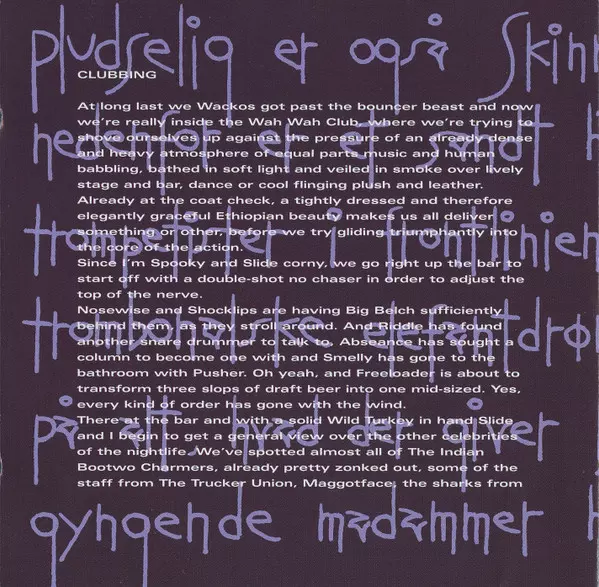 CLUBBING
At long last we Wackos got past the bouncer beast and now
we're really inside the Wah Wah Club, where we're trying to
shove ourselves up against the pressure of an already dense
and heavy atmosphere of equal parts music and human
babbling, bathed in soft light and veiled in smoke over lively
stage and bar, dance or cool flinging plush and leather.
Already at the coat check, a tightly dressed and therefore
elegantly graceful Ethiopian beauty makes us all deliver
something or other, before we try gliding triumphantly into
the core of the action.
Since I'm Spooky and Slide corny, we go right up the bar to
start off with a double-shot no chaser in order to adjust the
top of the nerve.
Nosewise and Shocklips are having Big Belch sufficiently
behind them, as they stroll around. And Riddle has found
another snare drummer to talk to. Absence has sought a
column to become one with and Smelly has gone to the
bathroom with Pusher. Oh yeah, and Freeloader is about to
transform three slops of draft beer into one mid-sized. Yes,
every kind of order has gone with the wind.
There at the bar and with a solid Wild Turkey in hand Slide
and I begin to get a general view over the other celebrities
of the nightlife. We've spotted almost all of The Indian
Bootwo Charmers, already pretty zonked out, some of the
staff from The Trucker Union, Maggotface, the sharks from
pludselig er også Skinn
er et sandt h
i frontlinien
elefantdrøn
på alt, hvad der giver
gyngende madammer h